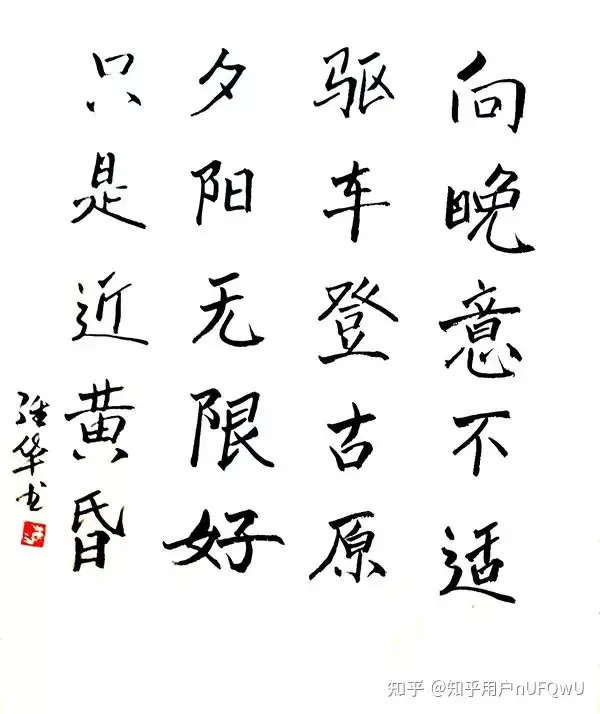 向晚意不适
驱车登古原
夕阳无限好
只是近黄昏
华书
知乎 @知乎用户nUFQwU